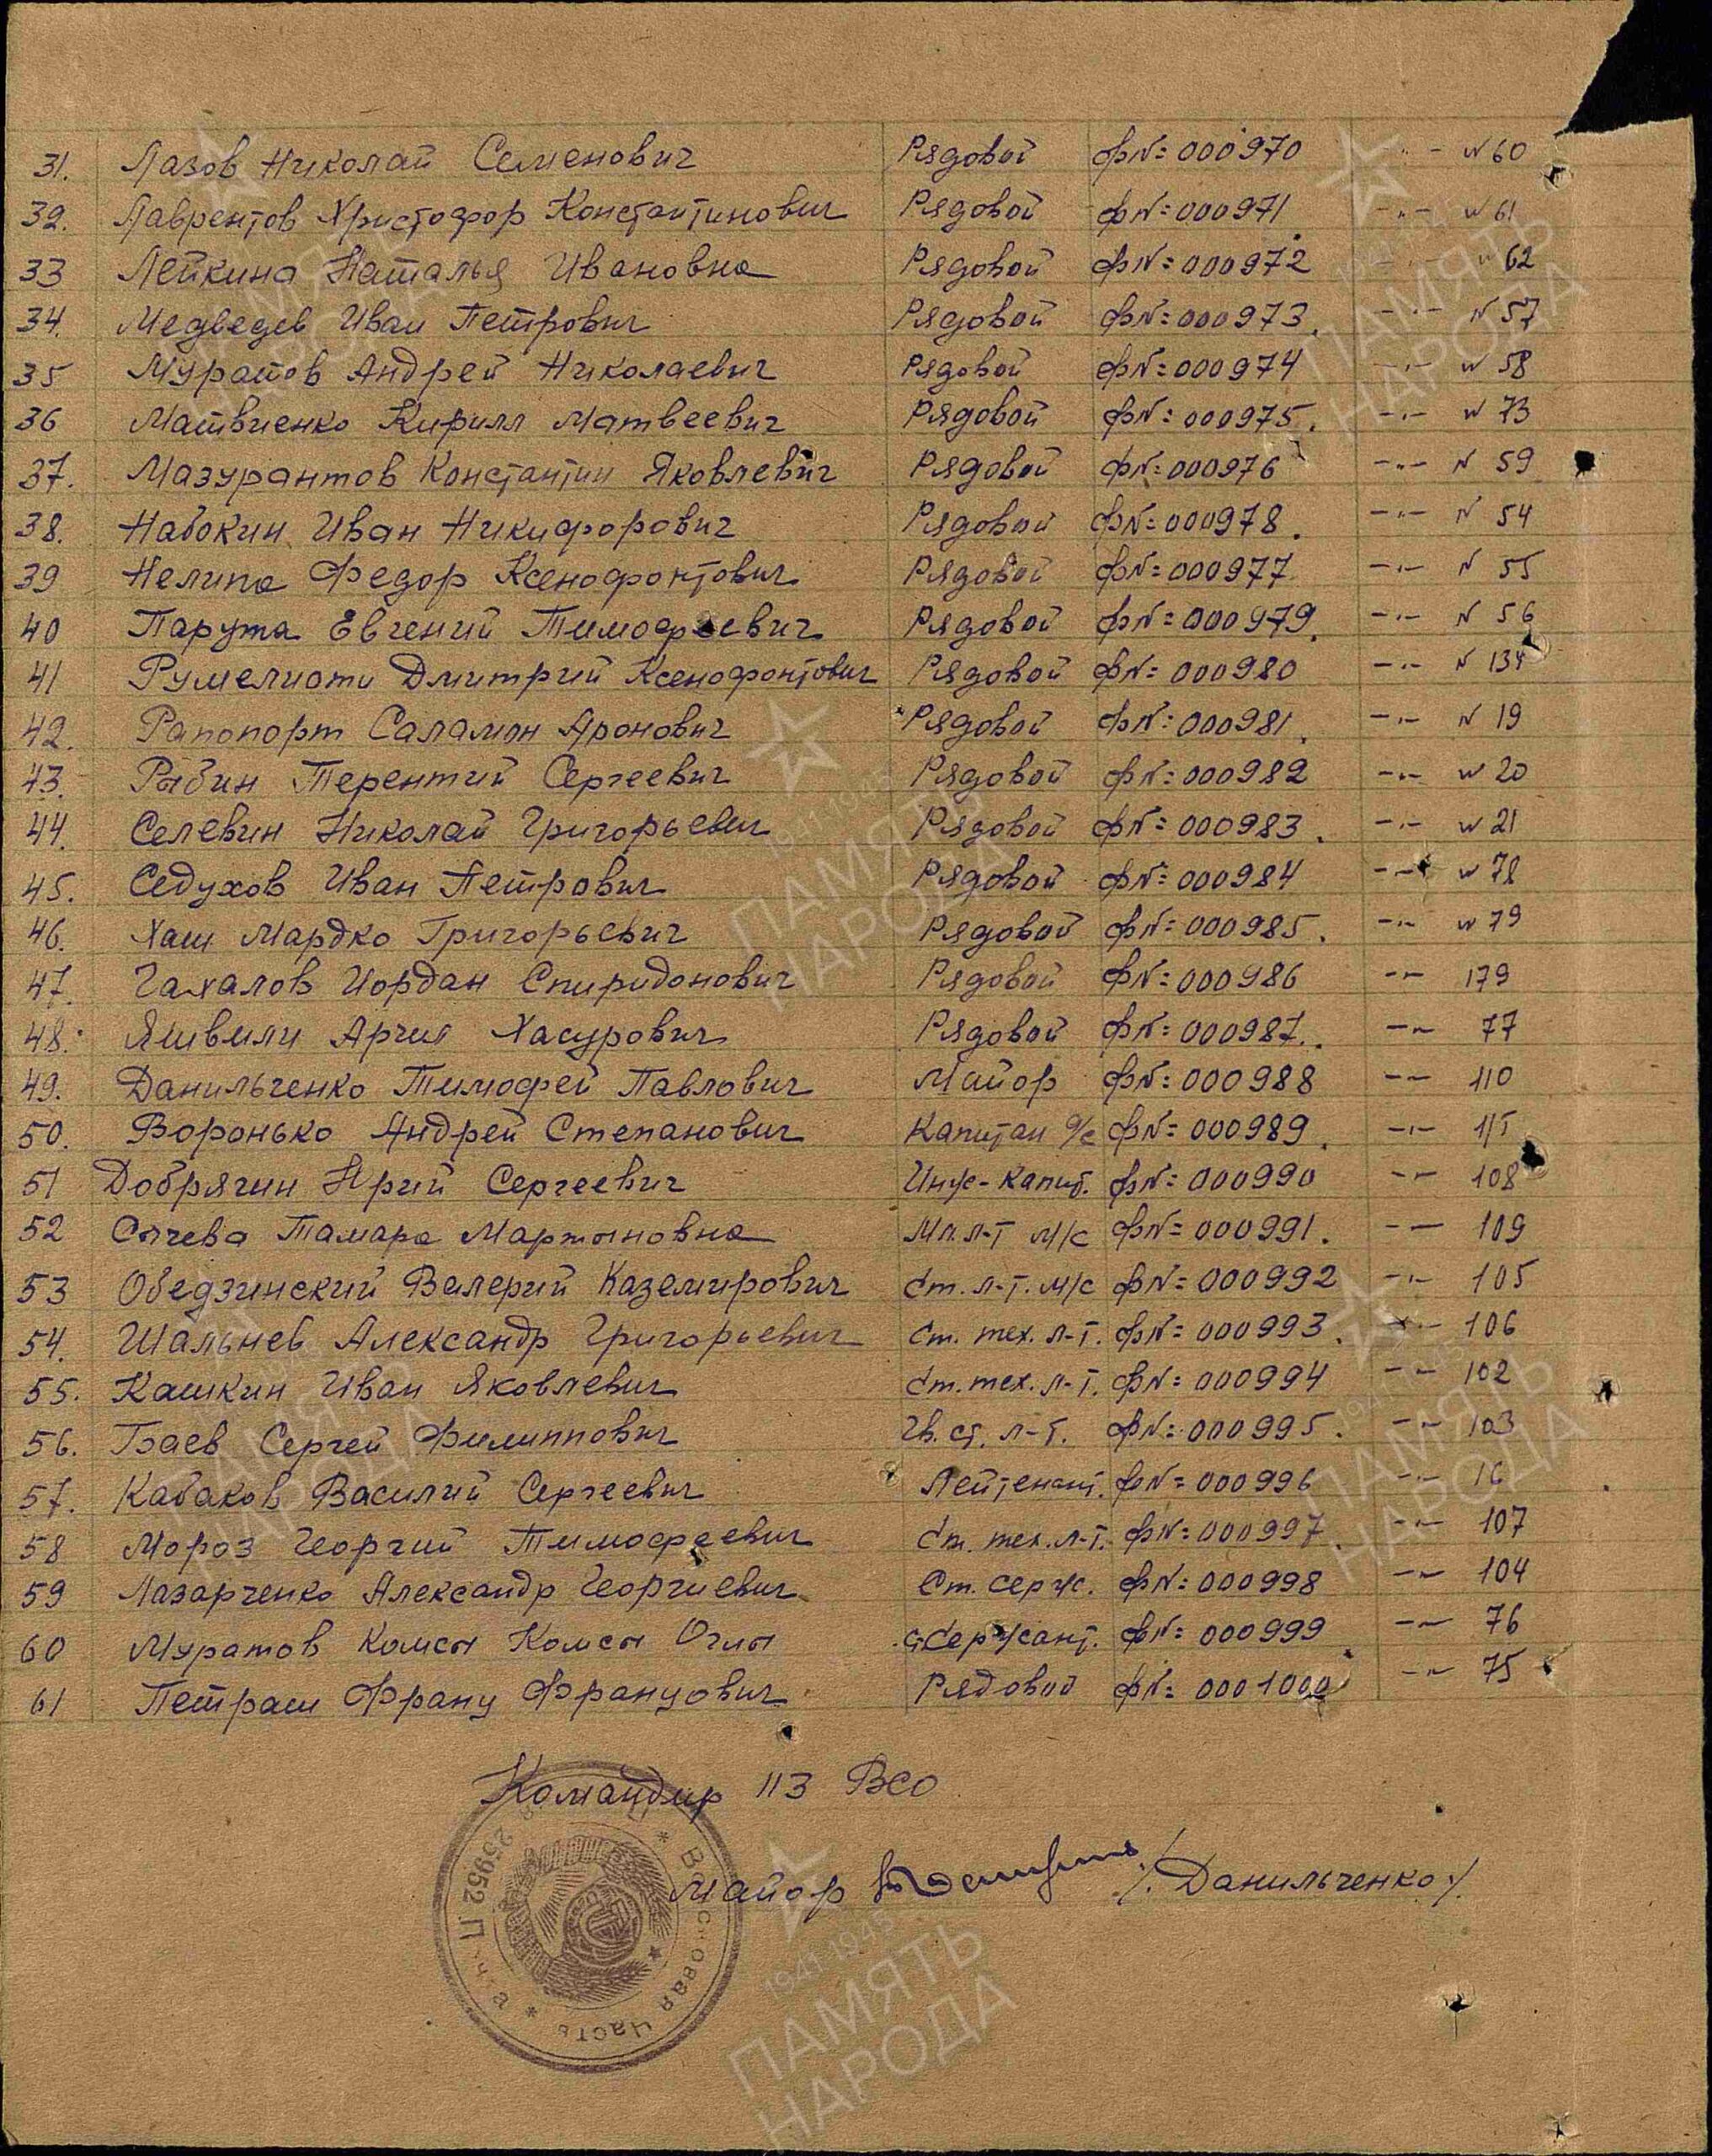 31. Лазов Николай Семенович Рядовой ФN=000970 -"- N 60
32. Лаврентов Христофор Константинович Рядовой ФN=000971. -"- N 61
33 Лейкина Наталья Ивановна Рядовой ФN=000972 -"- N 62
34. Медведев Иван Петрович Рядовой ФN=000973. -"- N 57
35 Муратов Андрей Николаевич Рядовой ФN=000974 -"- N 58
36 Матвиенко Кирилл Матвеевич Рядовой ФN=000975. -"- N 73
37. Мазурантов Константин Яковлевич Рядовой ФN=000976 -"- N 59
38. Набокин Иван Никифорович Рядовой ФN=000978. -"- N 54
39 Нелипа Федор Ксенофонтович Рядовой ФN=000977 -"- N 55
40 Парута Евгений Тимофеевич Рядовой ФN=000979. -"- N 56
41 Румелиоти Дмитрий Ксенофонтович Рядовой ФN=000980 -"- N 134
42. Рапопорт Саламон Аронович Рядовой ФN=000981. -"- N 19
43. Рыбин Терентий Сергеевич Рядовой ФN=000982 -"- N 20
44. Селевин Николай Григорьевич Рядовой ФN=000983. -"- N 21
45. Седухов Иван Петрович Рядовой ФN=000984 -"- N 78
46. Хаш Мардко Григорьевич Рядовой ФN=000985. -"- N 79
47. Чахалов Иордан Спиридонович Рядовой ФN=000986 -"- 179
48. Яшвили Арчил Хасурович Рядовой ФN=000987. -"- 77
49. Данильченко Тимофей Павлович Майор ФN=000988 -"- 110
50. Воронько Андрей Степанович Капитан а/с ФN=000989. -"-
51 Добрягин Юрий Сергеевич Инж-Капит. ФN=000990 -"- 108
52 Сычева Тамара Мартыновна Мл. л-т м/с ФN=000991. -"- 109
53 Обедзинский Валерий Каземирович Ст. л-т. м/с ФN=000992 -"- 105
54. Шальнев Александр Григорьевич Ст. тех. л-т. ФN=000993. -"- 106
55. Кашкин Иван Яковлевич Ст. тех. л-т. ФN=000994 -"- 102
56. Баев Сергей Филиппович Гв. ст. л-т. ФN=000995. -"- 103
57. Кабаков Василий Сергеевич Лейтенант. ФN=000996 -"- 16
58 Мороз Георгий Тимофеевич Ст. тех. л-т. ФN=000997. -"- 107
59 Лазарченко Александр Георгиевич Ст. серж. ФN=000998 -"- 104
60 Муратов Комсы Комсы Оглы Сержант. ФN=000999 -"- 76
61 Петраш Франц Францович Рядовой ФN=0001000 -"- 75
Командир 113 ВСО
Майор /. Данильченко ./
* Войсковая часть * п/ч 25952 П
ПАМЯТЬ
НАРОДА
1941-1945